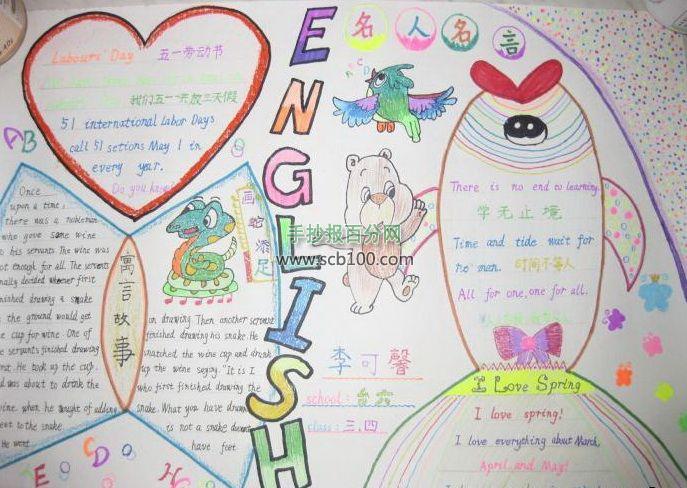 Labours' Day 五一劳动节
我们五一共放三天假
51 international Labor Days
call 51 setions May 1 in
every year.
Do you know
AB
Once
upon a time,
there was a nobleman
who gave some wine
to his servants. The wine was
not enough for all. The servants
finally decided whoever first
finished drawing a snake
the ground would get
cup for wine. One of
servants finished drawing
first. He took up the cup
and was about to drink the
wine, when he thought of adding
feet to the snake.
He went
寓言故事
画蛇添足
on drawing. Then another servant
finished drawing his snake. He
snatched the wine cup and drank
up the wine saying. "It is I
who first finished drawing the
snake. What you have drawn
is not a snake
have feet
E CD
ENGLISH
名人名言
CD
手抄报百分网
www.scb100.com
李可馨
school: 台六
class: 三.四
There is no end to learning.
学无止境
Time and tide wait for
no man. 时间不等人
All for one, one for all.
I Love Spring
I love spring!
I love everything about March,
April, and May!